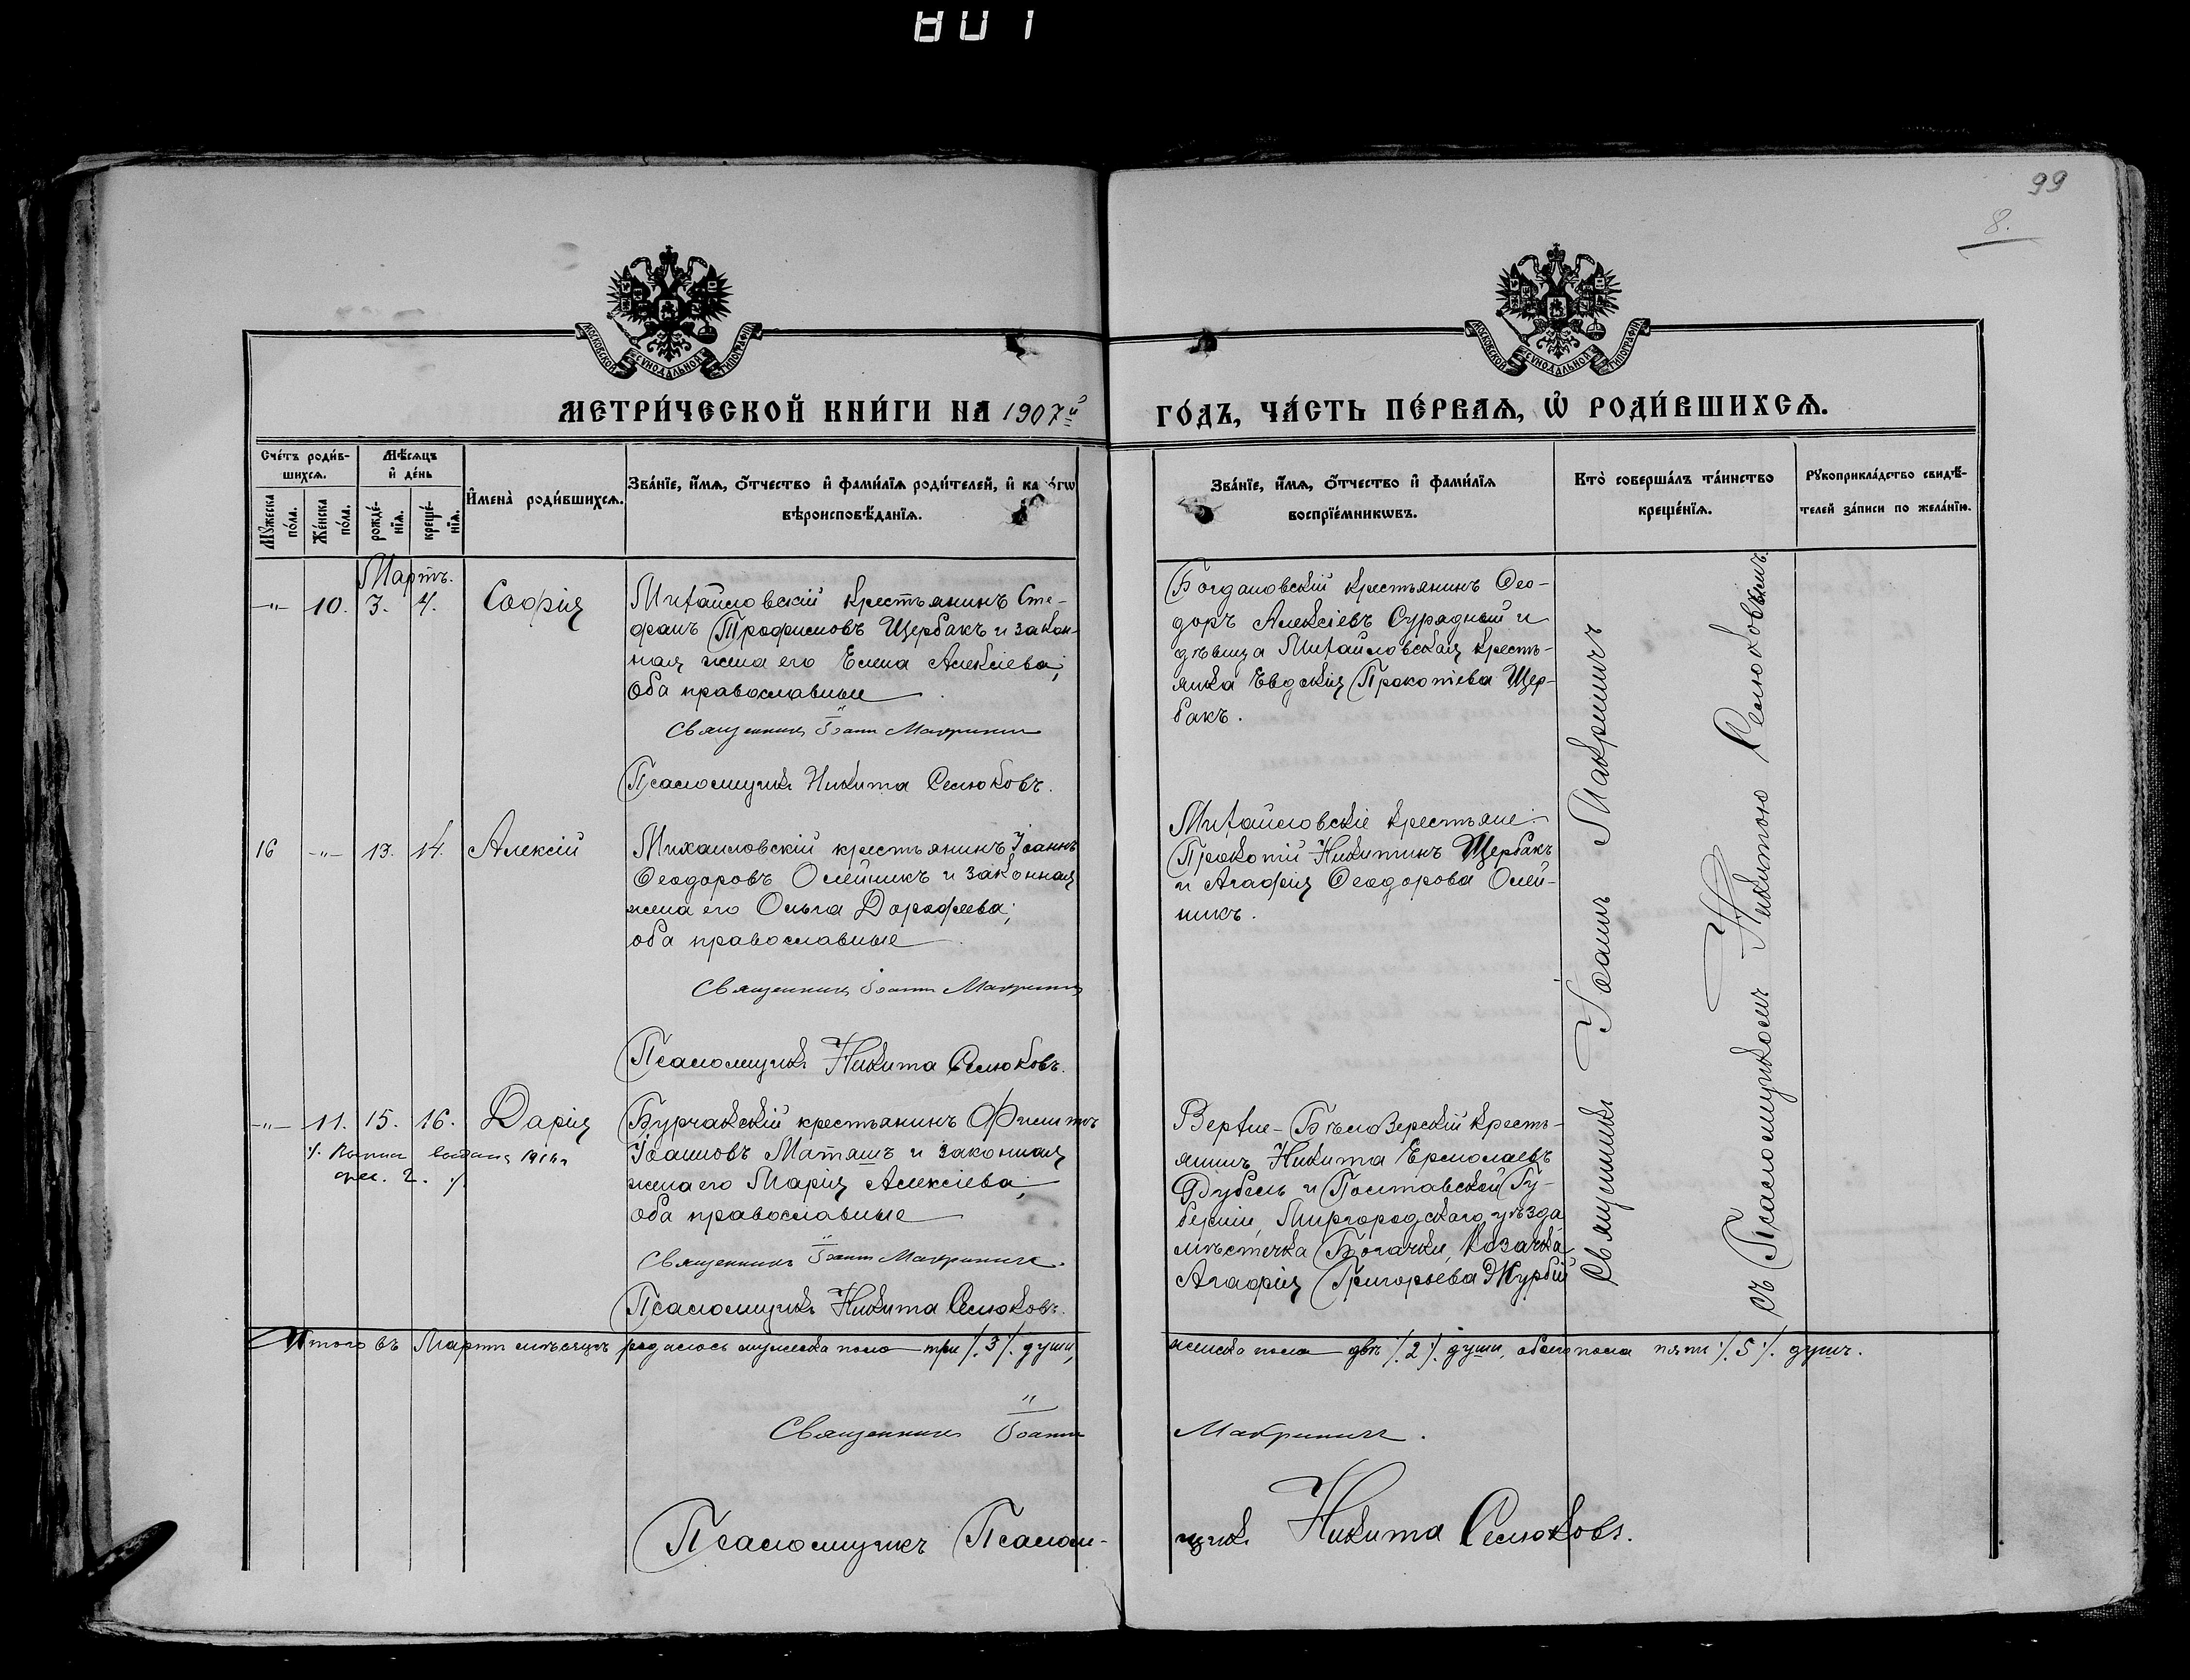 801
99
8.
МОСКОВСКОЙ СѴНОДАЛЬНОЙ ТИПОГРАФІИ
МОСКОВСКОЙ СѴНОДАЛЬНОЙ ТИПОГРАФІИ
МЕТРИ́ЧЕСКОЙ КНИ́ГИ НА 1907й
ГО́ДЪ, ЧА́СТЬ ПЕ́РВАѦ, Ѡ҆ РОДИ́ВШИХСѦ.
Сче́тъ роди́в-
шихсѧ.
Мѣ́сѧцъ
и҆ де́нь
Мꙋ́жеска
по́ла.
Же́нска
по́ла.
рожде́-
нїѧ.
креще́-
нїѧ.
И҆мена̀ роди́вшихсѧ.
Зва́нїе, и҆́мѧ, ѻ҆́тчество и҆ фами́лїѧ роди́телей, и҆ ка о́гѡ
вѣроисповѣ́данїѧ.
Зва́нїе, и҆́мѧ, ѻ҆́тчество и҆ фами́лїѧ
воспрїе́мникѡвъ.
Кто̀ соверша́лъ та́инство
креще́нїѧ.
Рꙋкоприкла́дство свидѣ́-
телей за́писи по жела́нїю.
Мартъ.
-"- 10. 3. 4. Софія
Михайловскій крестьянинъ Сте-
фанъ Трофимовъ Щербакъ и закон-
ная жена его Елена Алексіева;
оба православные
Священникъ Іоаннъ Макриничъ
Псаломщикъ Никита Селюковъ.
Богдановскій крестьянинъ Ѳео-
доръ Алексіевъ Сурядный и
дѣвица Михайловская кресть-
янка Евдокія Прокопіева Щер-
бакъ.
16 -"- 13. 14. Алексій
Михаиловскій крестьянинъ Іоаннъ
Ѳеодоровъ Олейникъ и законная
жена его Ольга Дорофеева;
оба православные
Священникъ Іоаннъ Макриничъ
Псаломщикъ Никита Селюковъ.
Михайловскіе крестьяне:
Прокопій Никитинъ Щербакъ
и Агафія Ѳеодорова Олей-
никъ.
-"- 11. 15. 16. Дарія
выдана
2.
Бурчакскій крестьянинъ Филиппъ
Іоанновъ Маташъ и законная
жена его Марія Алексіева;
оба православные
Священникъ Іоаннъ Макриничъ.
Псаломщикъ Никита Селюковъ.
Верхне-Бѣлозерскій кресть-
янинъ Никита Ермолаевъ
и Полтавской Гу-
берніи, Миргородскаго уѣзда
мѣстечка Богачки, козачка
Агафія Григорьева Журбій
Священникъ Іоаннъ Макриничъ
съ Псаломщикомъ Никитою Селюковымъ.
Итого въ Мартѣ мѣсяцѣ родилось мужеска пола три /.3/. души,
женска пола двѣ /.2/. души, обоего пола пять /.5/. душъ.
Священникъ Іоаннъ
Макриничъ.
Псаломщикъ Псалом-
щикъ Никита Селюковъ.